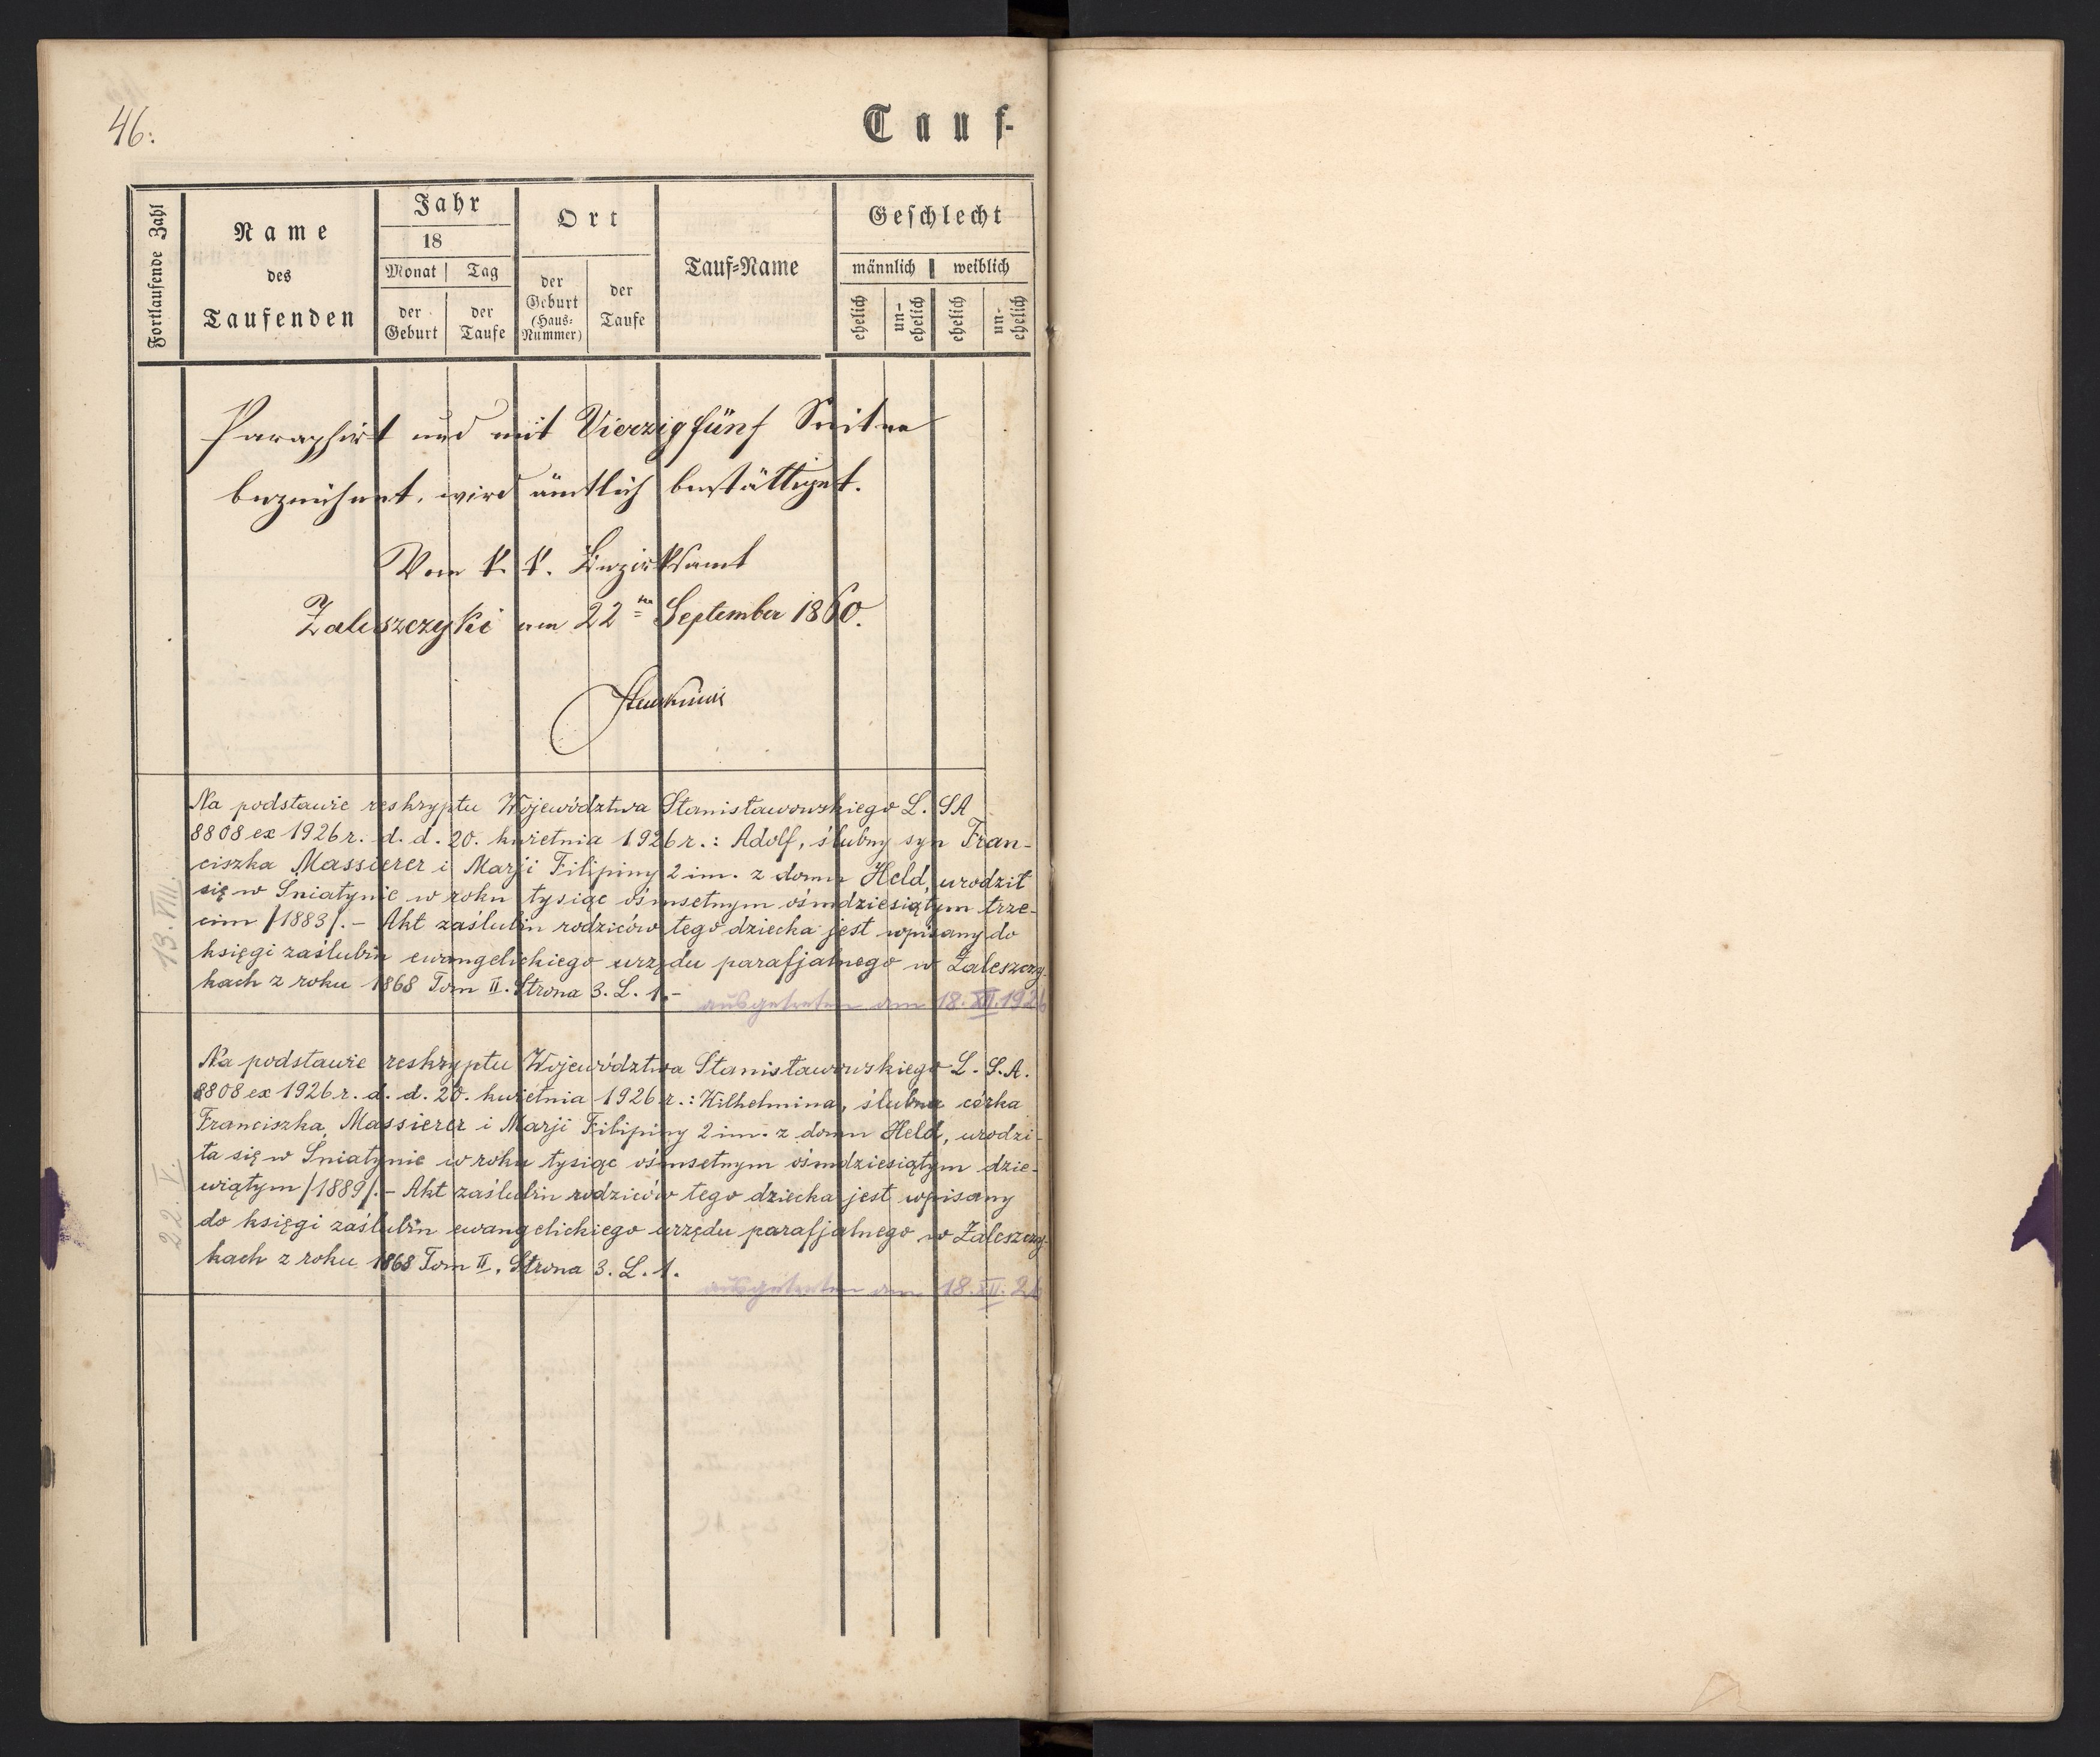 46:
Tauf-
Fortlaufende Zahl
Name
des
Taufenden
Jahr
18
Monat | Tag
der Geburt
der Taufe
Ort
der Geburt (Haus-Nummer)
der Taufe
Tauf-Name
Geschlecht
männlich | weiblich
ehelich
un-ehelich
ehelich
un-ehelich
Paraphirt und mit Vierzig fünf Seiten
bezeichnet, wird ämtlich bestättiget.
Vom k. k. Bezirksamt
Zaleszczyki am 22ten September 1860.
Na podstawie reskryptu Województwa Stanisławowskiego L. SA
8808 ex 1926 r. d. d. 20. kwietnia 1926 r.: Adolf, ślubny syn Fran-
ciszka Massierer i Marji Filipiny 2 im. z domu Held, urodził
się w Śniatynie w roku tysiąc ośmsetnym ośmdziesiątym trze-
cim /1883/. - Akt zaślubin rodziców tego dziecka jest wpisany do
księgi zaślubin ewangelickiego urzędu parafjalnego w Zaleszczy-
kach z roku 1868 Tom II. Strona 3. L. 1. -
13. VIII.
ausgetreten am 18. XII. 1926
Na podstawie reskryptu Województwa Stanisławowskiego L. S. A.
8808 ex 1926 r. d. d. 20. kwietnia 1926 r.: Wilhelmina, ślubna córka
Franciszka Massierer i Marji Filipiny 2 im. z domu Held, urodzi-
ła się w Śniatynie w roku tysiąc ośmsetnym ośmdziesiątym dzie-
wiątym /1889/. - Akt zaślubin rodziców tego dziecka jest wpisany
do księgi zaślubin ewangelickiego urzędu parafjalnego w Zaleszczy-
kach z roku 1868 Tom II. Strona 3. L. 1.
22. V.
ausgetreten am 18. XII. 26